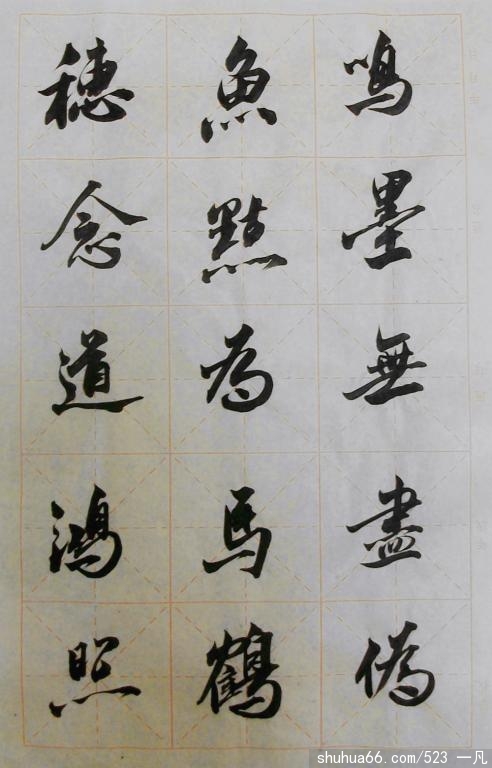 鳴墨無盡偽
魚點為馬鶴
穗念道鴻照
shuhua66.com/523 一凡